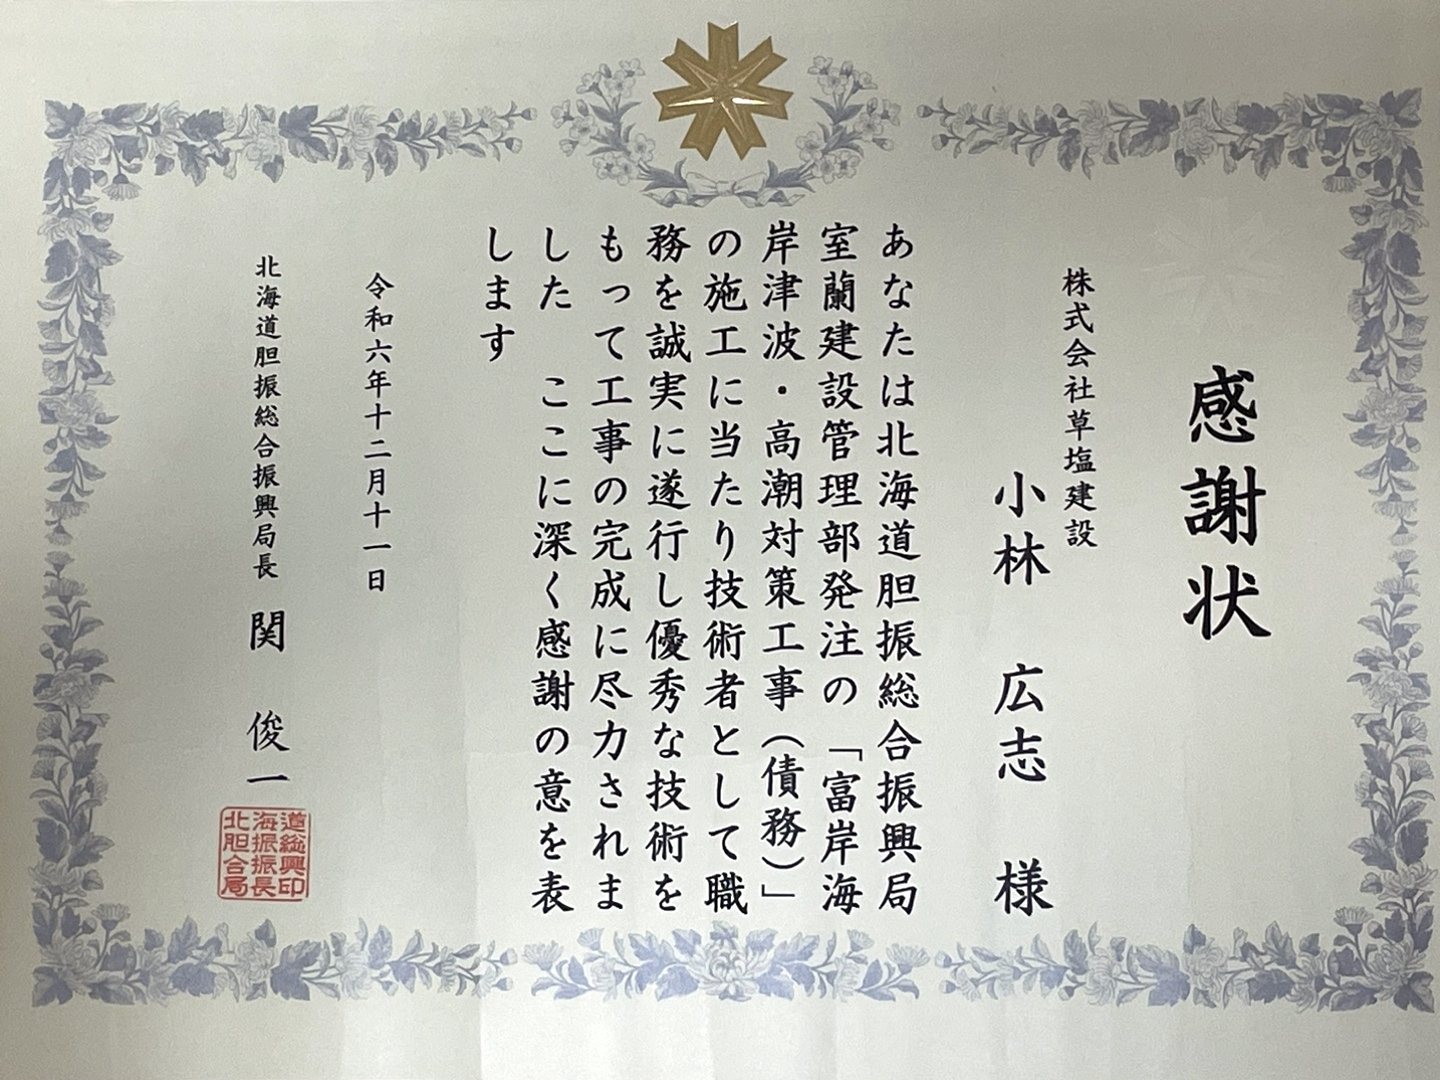 感謝状
株式会社草塩建設
小林 広志 様
あなたは北海道胆振総合振興局
室蘭建設管理部発注の「富岸海
岸津波・高潮対策工事(債務)」
の施工に当たり技術者として職
務を誠実に遂行し優秀な技術を
もって工事の完成に尽力されま
した ここに深く感謝の意を表
します
令和六年十二月十一日
北海道胆振総合振興局長 関 俊一
道総興印
海振振長
北胆合局